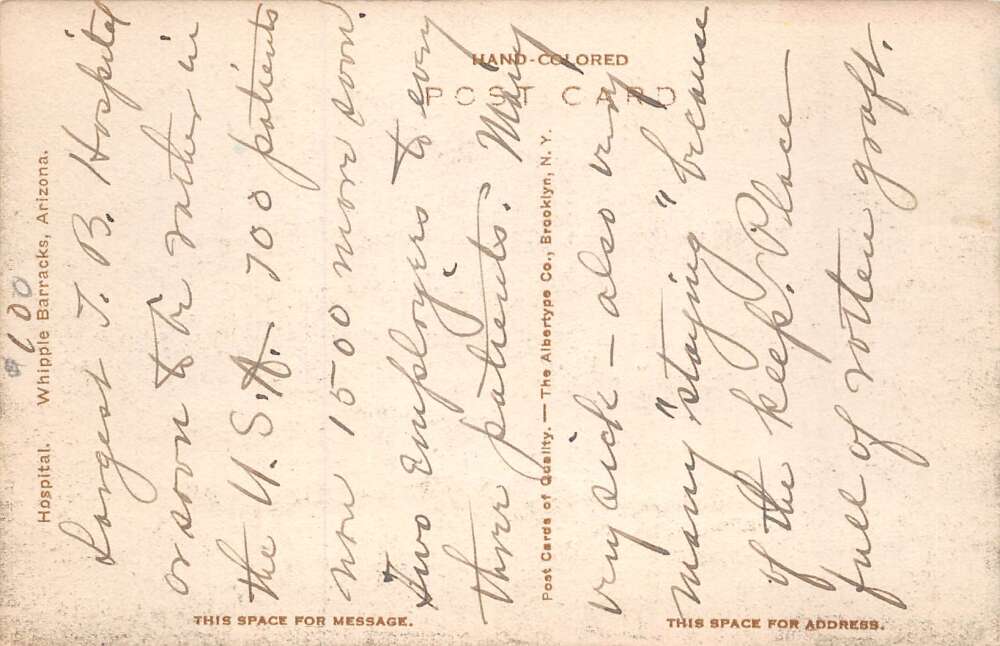 HAND-COLORED
POST CARD
Hospital. Whipple Barracks, Arizona.
100
Largest T. B. Hospital
or soon to be rather in
the U.S.A. 700 patients
now 1500 more soon.
Two Employees to every
three patients. Many
very sick — also very
many "staying" because
of the keep. Place
full of rotten graft.
Post Cards of Quality. — The Albertype Co., Brooklyn, N. Y.
THIS SPACE FOR MESSAGE.
THIS SPACE FOR ADDRESS.